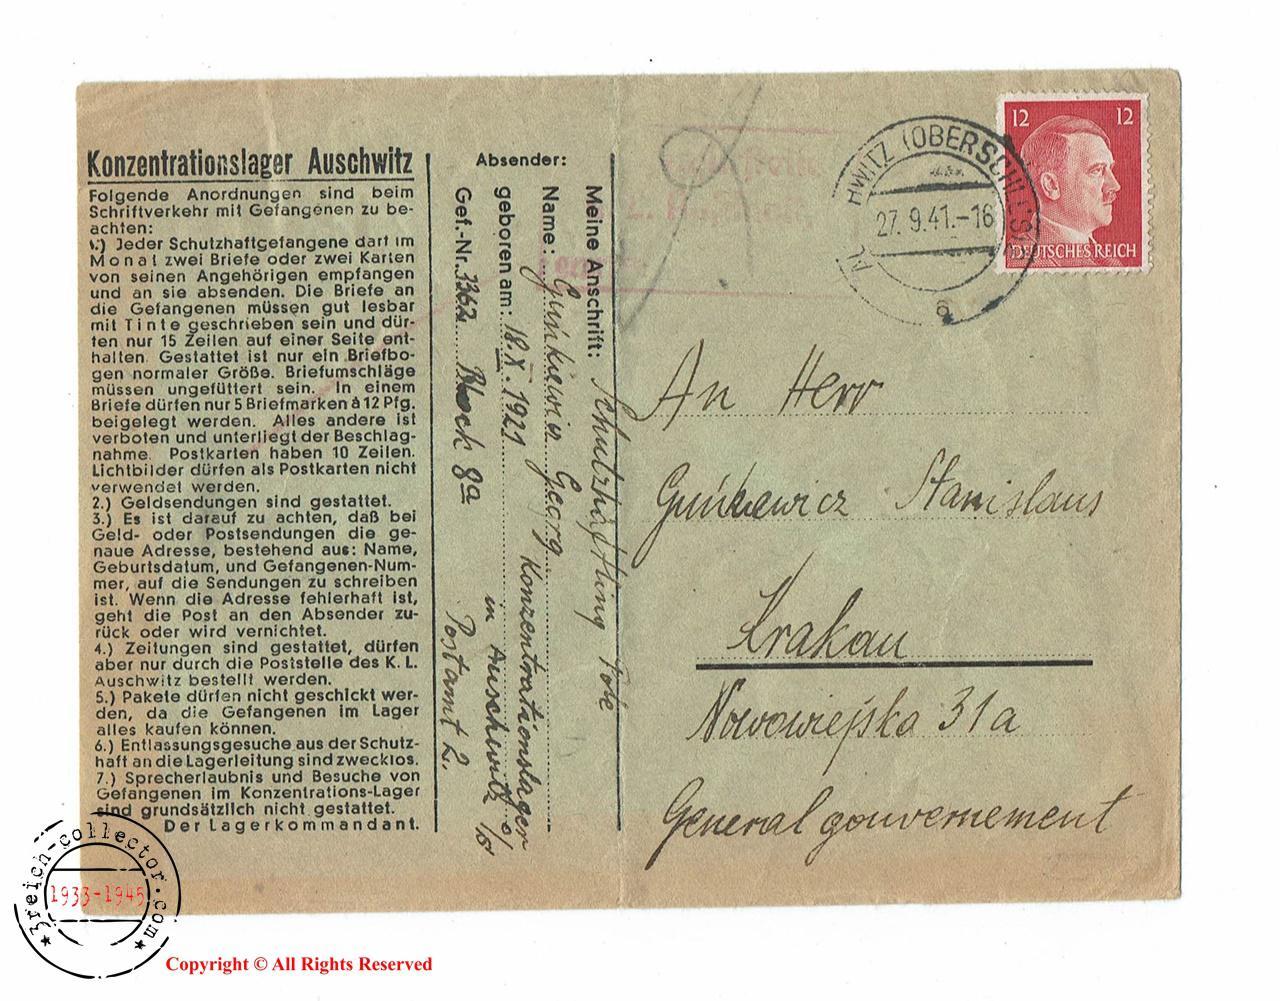 Konzentrationslager Auschwitz
Folgende Anordnungen sind beim
Schriftverkehr mit Gefangenen zu be-
achten:
1.) Jeder Schutzhaftgefangene darf im
Monat zwei Briefe oder zwei Karten
von seinen Angehörigen empfangen
und an sie absenden. Die Briefe an
die Gefangenen müssen gut lesbar
mit Tinte geschrieben sein und dür-
fen nur 15 Zeilen auf einer Seite ent-
halten. Gestattet ist nur ein Briefbo-
gen normaler Größe. Briefumschläge
müssen ungefüttert sein. In einem
Briefe dürfen nur 5 Briefmarken à 12 Pfg.
beigelegt werden. Alles andere ist
verboten und unterliegt der Beschlag-
nahme. Postkarten haben 10 Zeilen.
Lichtbilder dürfen als Postkarten nicht
verwendet werden.
2.) Geldsendungen sind gestattet.
3.) Es ist darauf zu achten, daß bei
Geld- oder Postsendungen die ge-
naue Adresse, bestehend aus: Name,
Geburtsdatum, und Gefangenen-Num-
mer, auf die Sendungen zu schreiben
ist. Wenn die Adresse fehlerhaft ist,
geht die Post an den Absender zu-
rück oder wird vernichtet.
4.) Zeitungen sind gestattet, dürfen
aber nur durch die Poststelle des K. L.
Auschwitz bestellt werden.
5.) Pakete dürfen nicht geschickt wer-
den, da die Gefangenen im Lager
alles kaufen können.
6.) Entlassungsgesuche aus der Schutz-
haft an die Lagerleitung sind zwecklos.
7.) Sprecherlaubnis und Besuche von
Gefangenen im Konzentrations-Lager
sind grundsätzlich nicht gestattet.
Der Lagerkommandant.
Absender:
Meine Anschrift: Schutzhäftling Pole
Name: Guńkiewicz Georg
Konzentrationslager
geboren am: 18.X.1921
in Auschwitz O/S
Gef.-Nr. 3362 Block 8a
Postamt 2.
HWITZ (OBERSCHLES)
27.9.41.-16
6
12 12
DEUTSCHES REICH
An Herr
Guńkiewicz Stanislaus
Krakau
Nowowiejska 31a
General gouvernement
3reich-collector.com
1933-1945
Copyright © All Rights Reserved